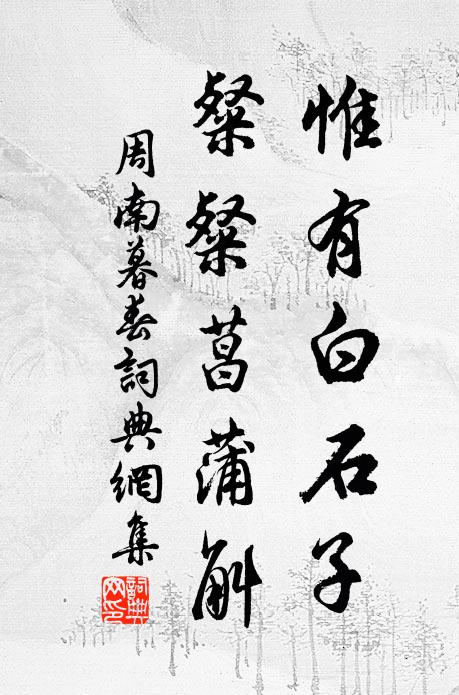 惟有白石子
粲粲菖蒲斛
周南暮春詞典網集